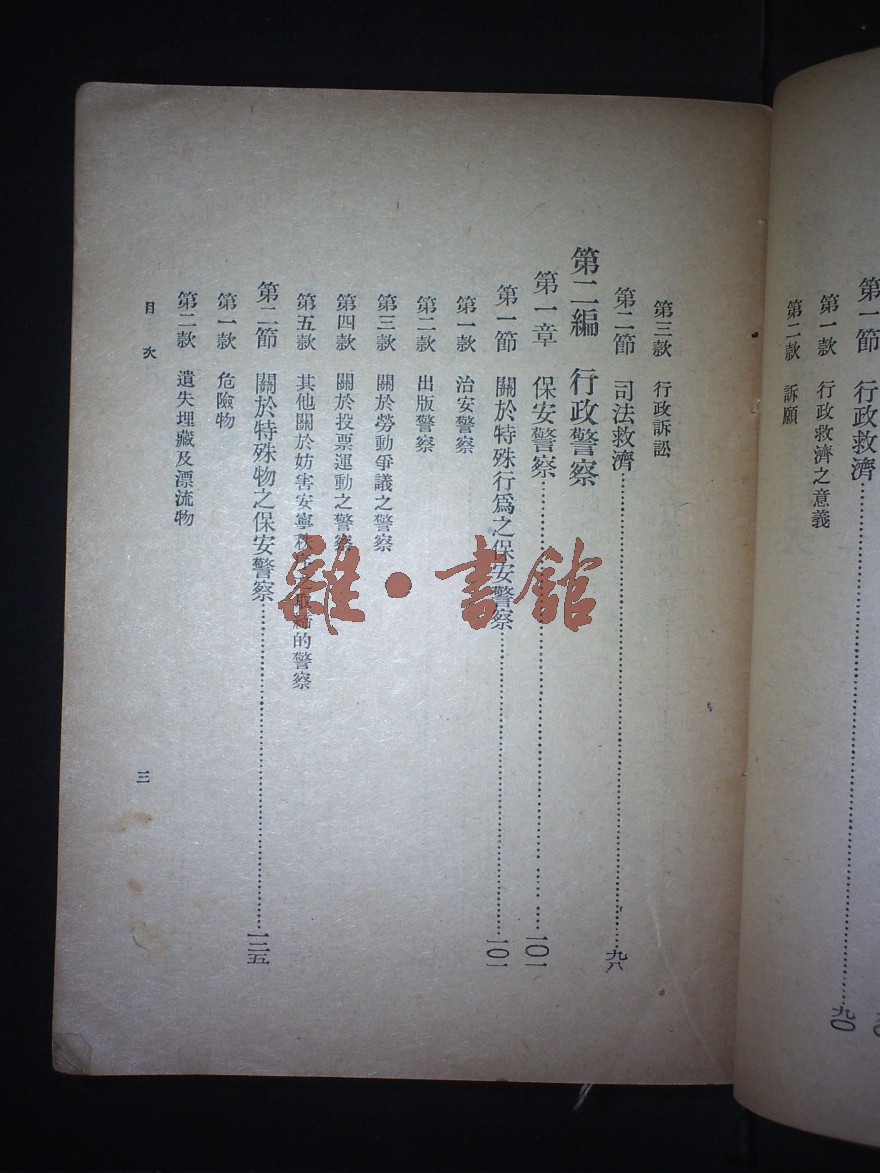 第一節 行政救濟……九〇
第一款 行政救濟之意義
第二款 訴願
第三款 行政訴訟
第二節 司法救濟……九八
第二編 行政警察
第一章 保安警察……一〇一
第一節 關於特殊行爲之保安警察……一〇一
第一款 治安警察
第二款 出版警察
第三款 關於勞動爭議之警察
第四款 關於投票運動之警察
第五款 其他關於妨害安寧秩序之取締的警察
第二節 關於特殊物之保安警察……一二五
第一款 危險物
第二款 遺失埋藏及漂流物
目次
三
雜·書館